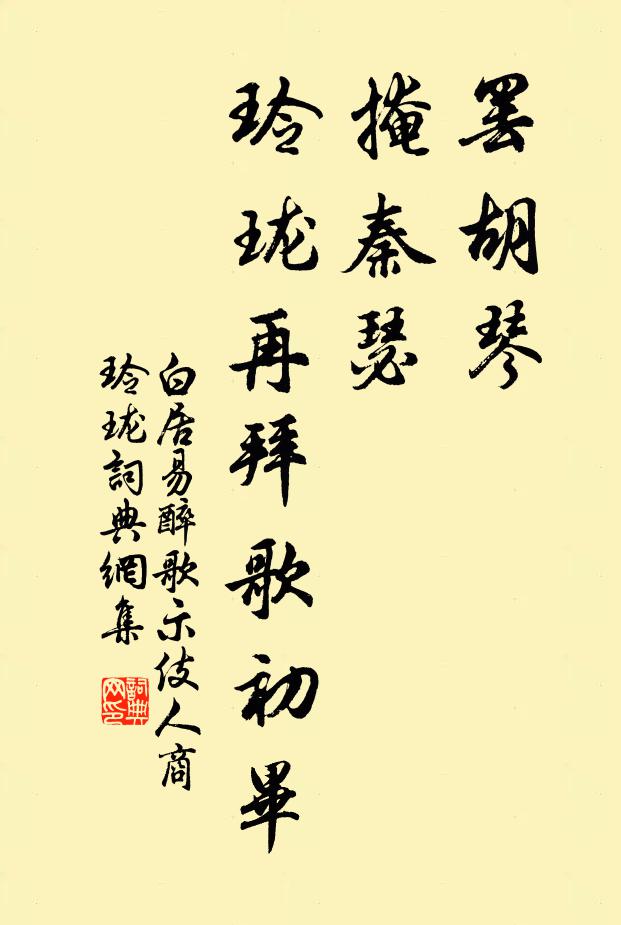 罷胡琴
掩秦瑟
玲瓏再拜歌初畢
白居易醉歌示伎人商
玲瓏詞典網集
詞典網印